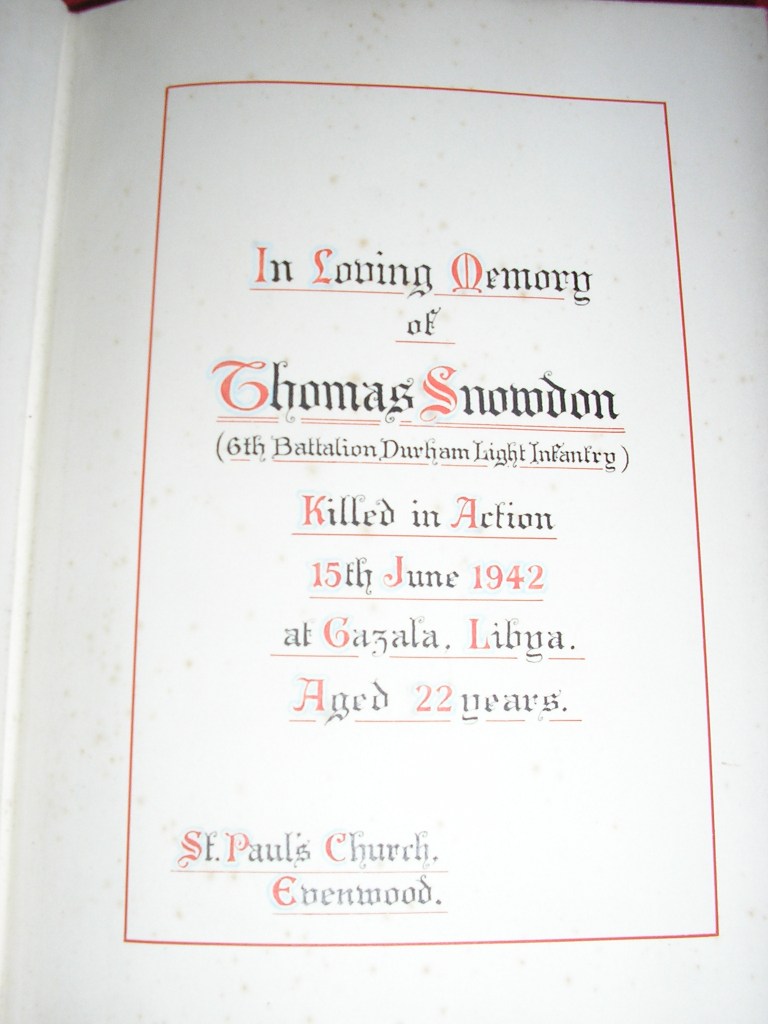 In Loving Memory
of
Thomas Snowdon
(6th Battalion Durham Light Infantry)
Killed in Action
15th June 1942
at Gazala. Libya.
Aged 22 years.
St. Paul's Church.
Evenwood.